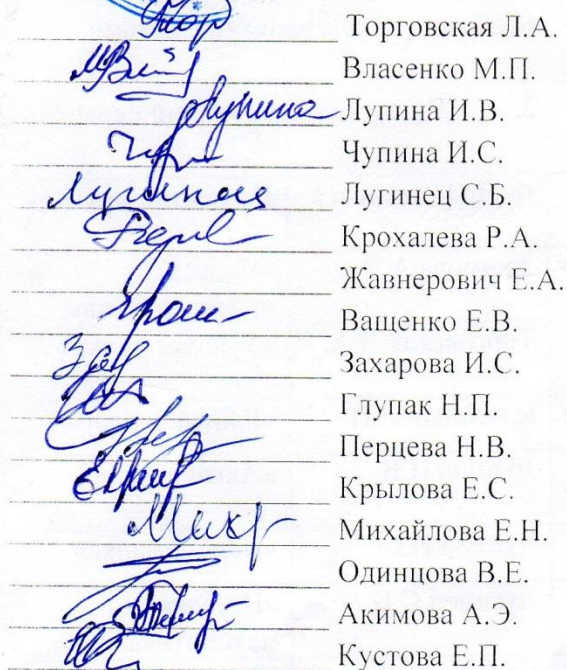 Торговская Л.А.
Власенко М.П.
Лупина Лупина И.В.
Чупина И.С.
Лугинец Лугинец С.Б.
Крохалева Р.А.
Жавнерович Е.А.
Ващенко Е.В.
Захарова И.С.
Глупак Н.П.
Перцева Н.В.
Крылова Е.С.
Михайлова Е.Н.
Одинцова В.Е.
Акимова А.Э.
Кустова Е.П.